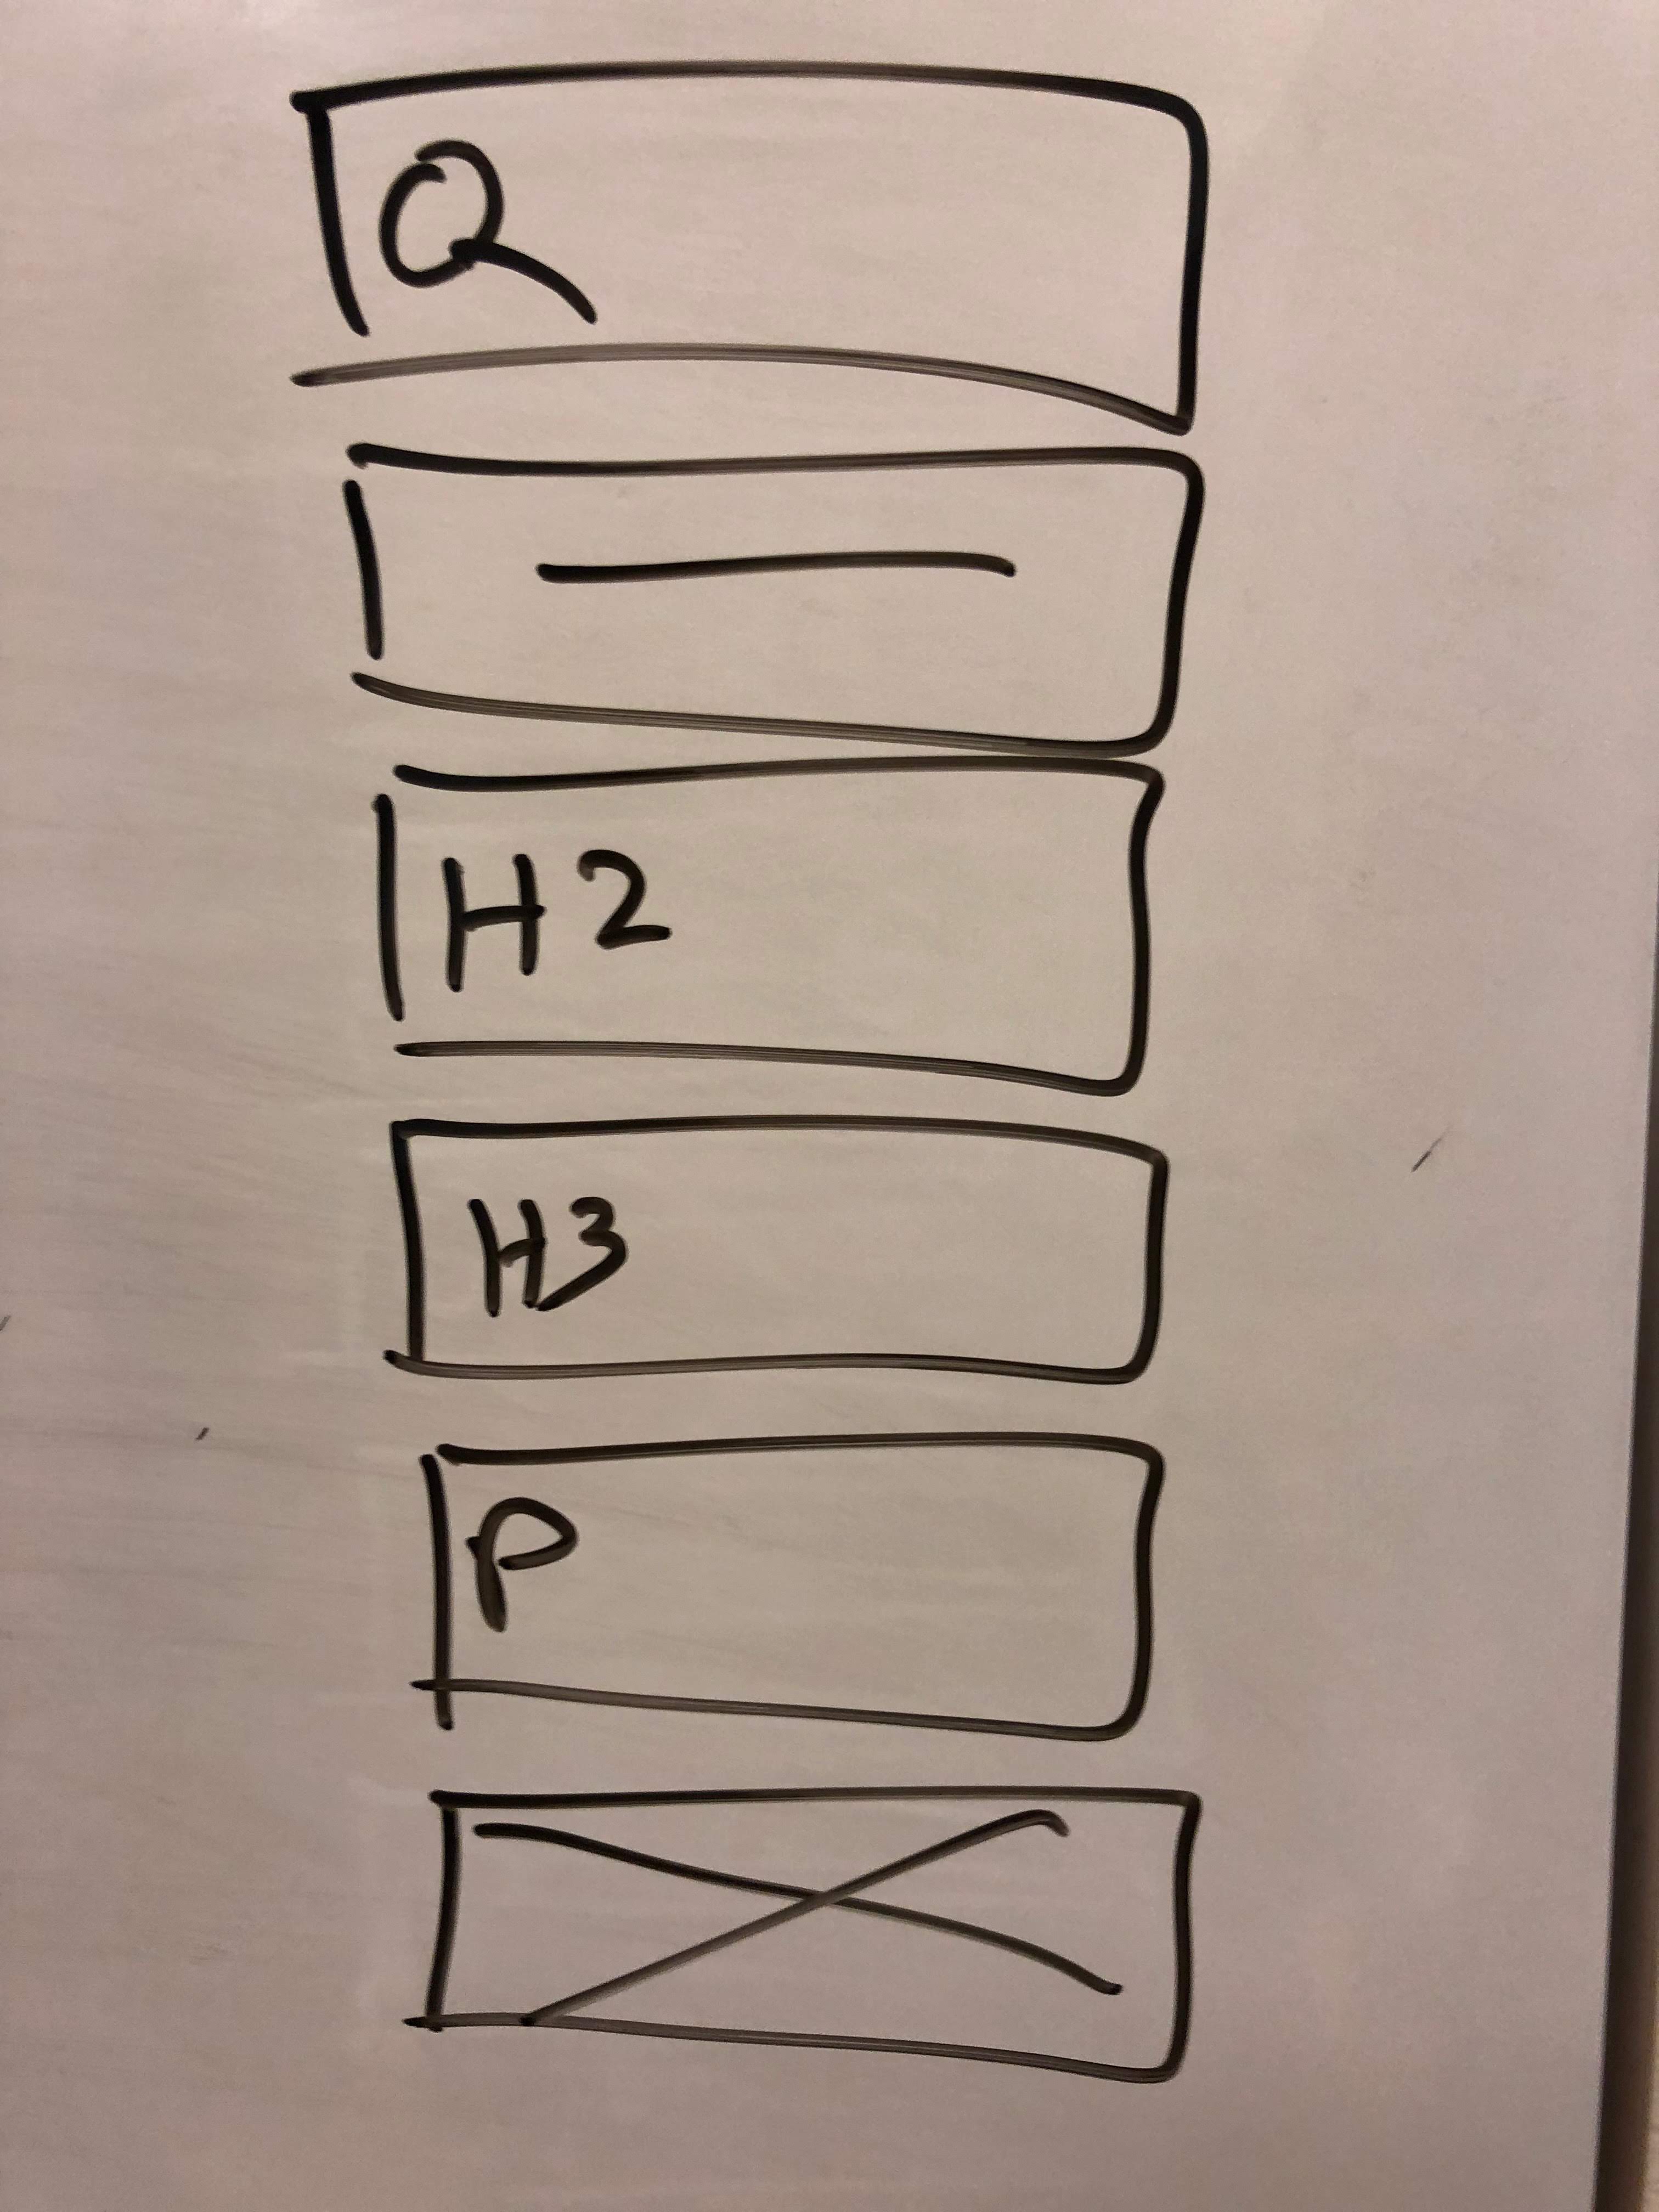 Q
H2
H3
P